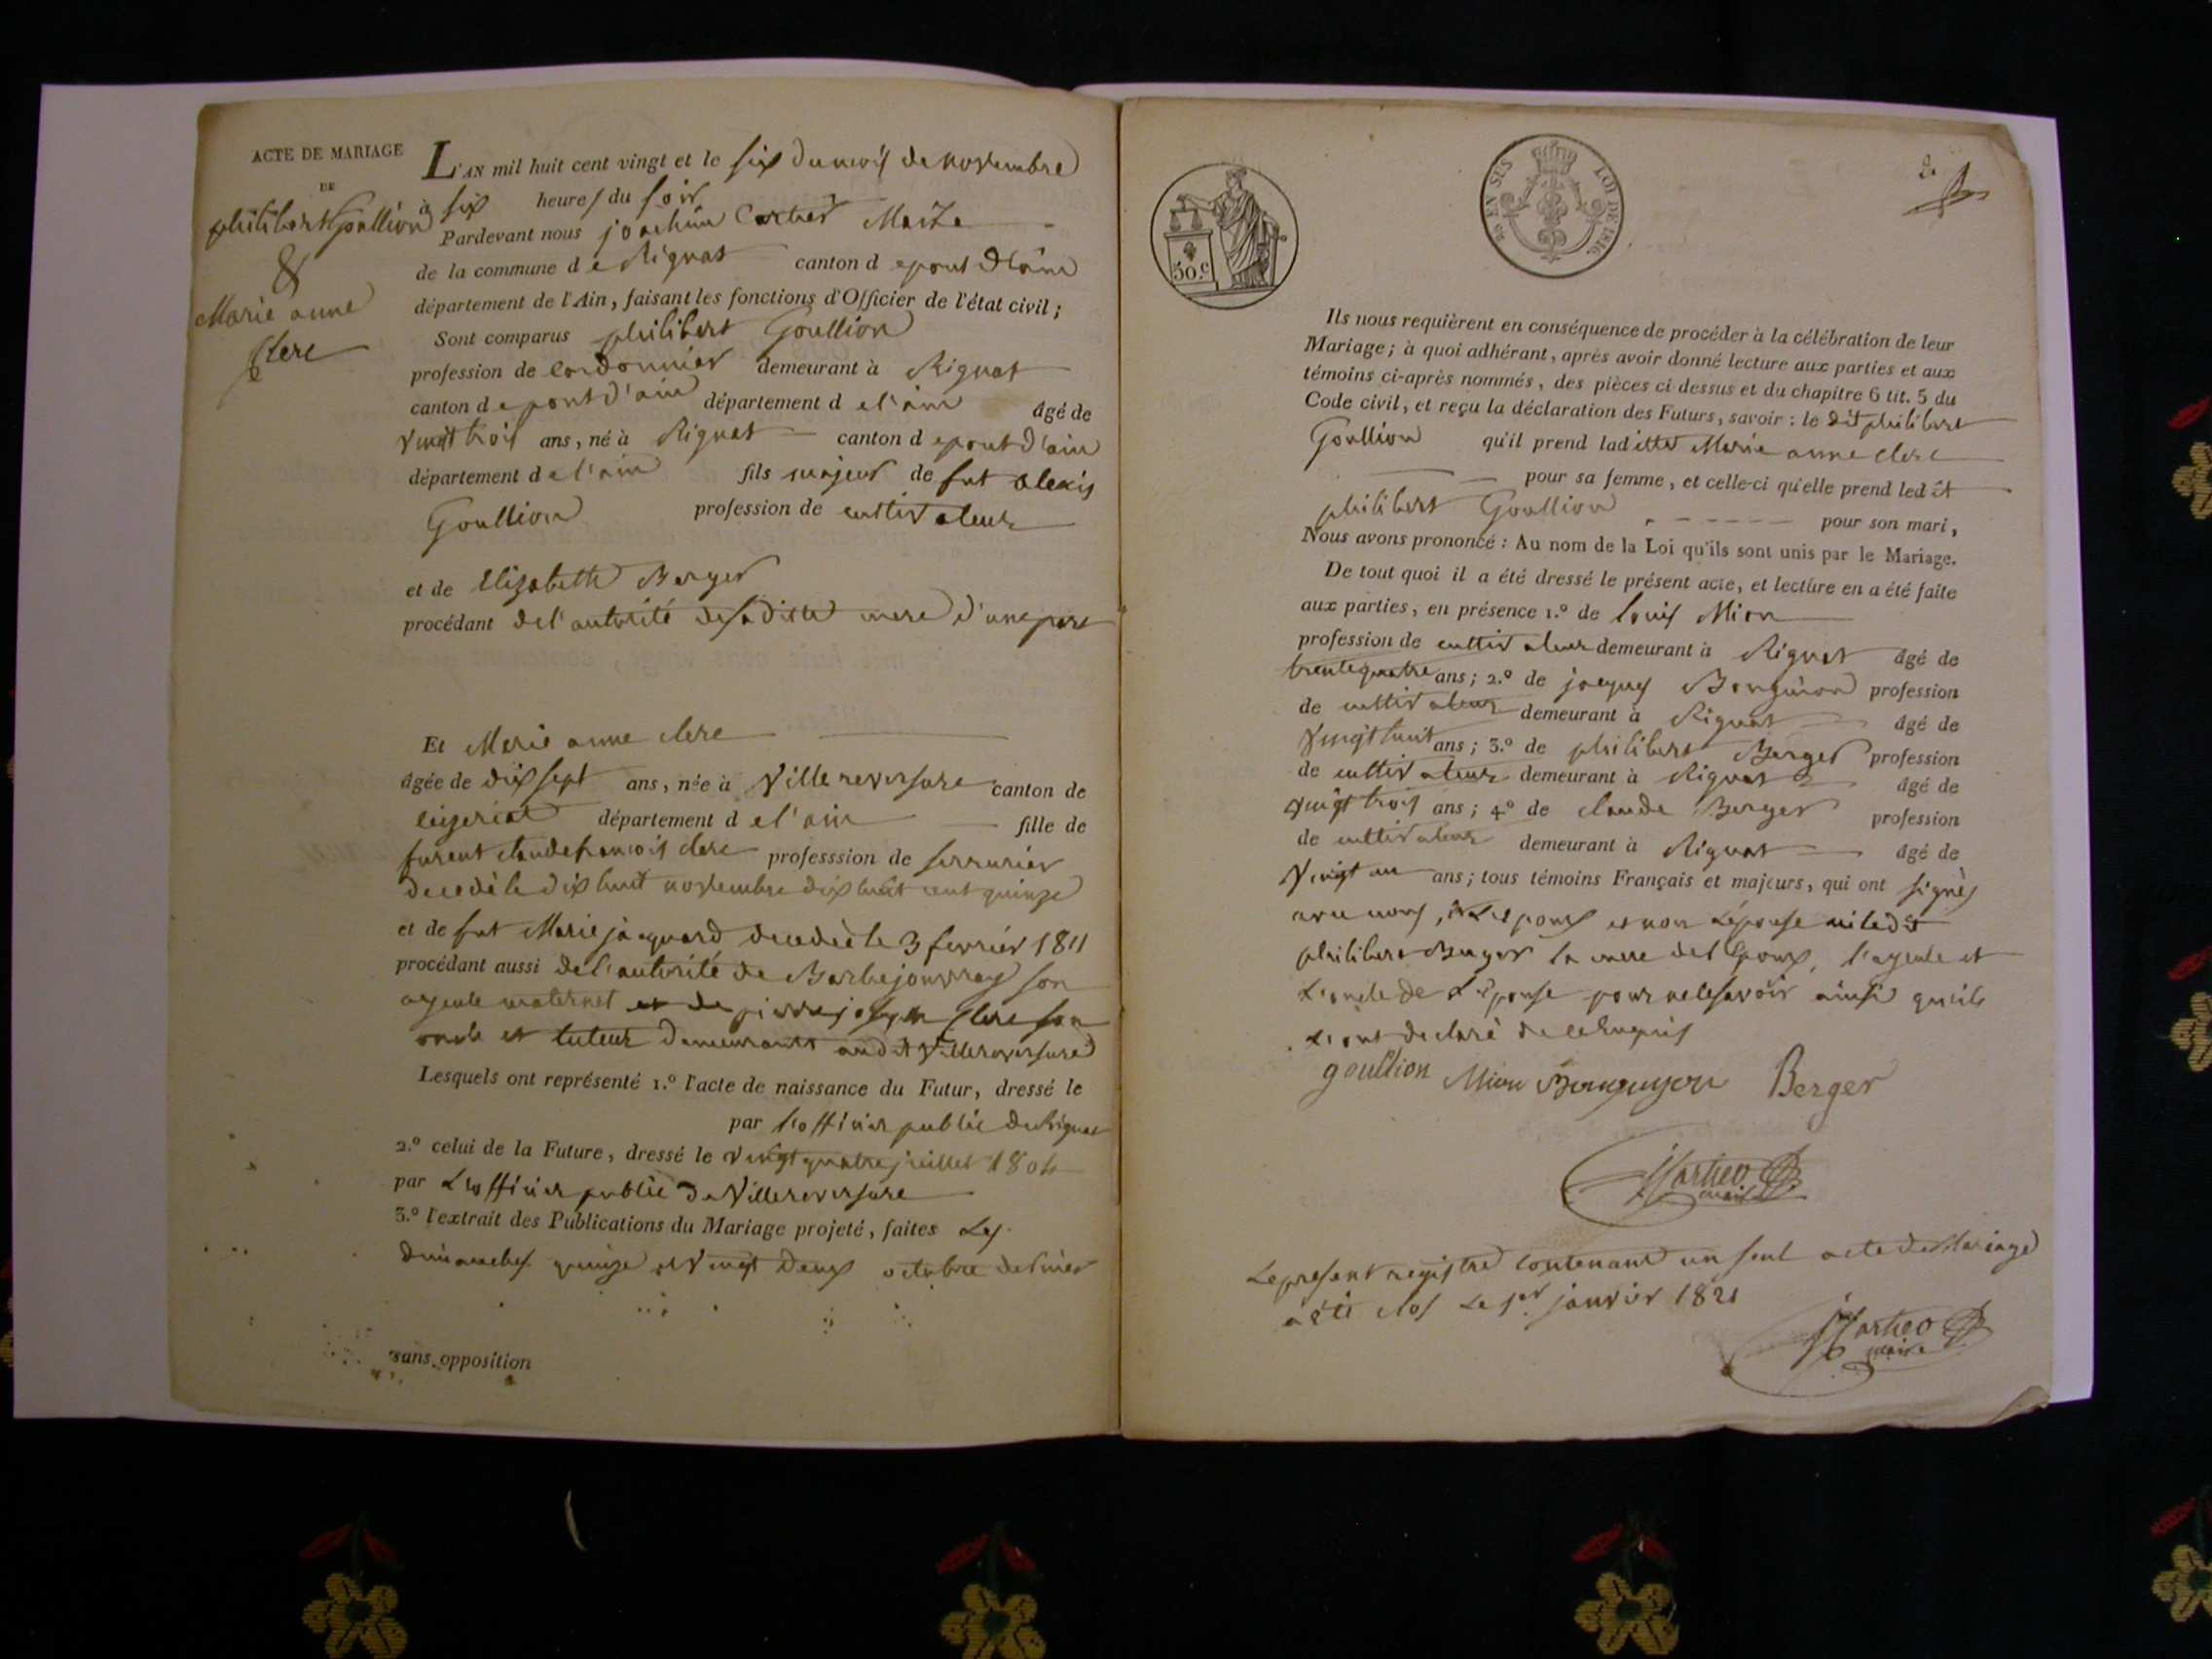 ACTE DE MARIAGE
DE
philibert Goullion
&
Marie anne
Clerc
L'AN mil huit cent vingt et le six du mois de novembre
à six heures du soir
Pardevant nous joachim Maire
de la commune de Rignat canton de pont d'ain
département de l'Ain, faisant les fonctions d'Officier de l'état civil ;
Sont comparus philibert Goullion
profession de cordonnier demeurant à Rignat
canton de pont d'ain département de l'ain âgé de
vingt trois ans, né à Rignat canton de pont d'ain
département de l'ain fils majeur de fut alexis
Goullion profession de cultivateur
et de Elizabeth Berger
procédant de l'autorité de sa ditte mere d'une part
Et Marie anne clerc
âgée de dix sept ans, née à Villereversure canton de
ceizeriat département de l'ain fille de
furent claude francois clerc professsion de serrurier
decedé le dix huit novembre dix huit cent quinze
et de fut Marie jacquard decedèe le 3 fevrier 1811
procédant aussi de l'autorité de Barbe son
ayeule maternel et de pierre joseph Clerc son
oncle et tuteur demeurants audit Villereversure
Lesquels ont représenté 1.º l'acte de naissance du Futur, dressé le
par l'officier public de Rignat
2.º celui de la Future, dressé le vingt quatre juillet 1804
par L'officier public de Villereversure
3.º l'extrait des Publications du Mariage projeté, faites Les
dimanches quinze et vingt deux octobre dernier
sans opposition
50.C
EN SUS LOI DE 1816
2e
Ils nous requièrent en conséquence de procéder à la célébration de leur
Mariage ; à quoi adhérant, après avoir donné lecture aux parties et aux
témoins ci-après nommés, des pièces ci dessus et du chapitre 6 tit. 5 du
Code civil, et reçu la déclaration des Futurs, savoir : le dit philibert
Goullion qu'il prend laditte Marie anne clerc
pour sa femme, et celle-ci qu'elle prend ledit
philibert Goullion pour son mari,
Nous avons prononcé : Au nom de la Loi qu'ils sont unis par le Mariage.
De tout quoi il a été dressé le présent acte, et lecture en a été faite
aux parties, en présence 1.º de louis Mion
profession de cultivateur demeurant à Rignat âgé de
trente quatre ans ; 2.º de jacques profession
de cultivateur demeurant à Rignat âgé de
vingt huit ans ; 3.º de philibert Berger profession
de cultivateur demeurant à Rignat âgé de
vingt trois ans ; 4º de claude Berger profession
de cultivateur demeurant à Rignat âgé de
Vingt un ans ; tous témoins Français et majeurs, qui ont signés
avec nous, et L'epoux et non L'épouse ni ledit
philibert Berger la mere de l'Epoux, l'ayeule et
L'oncle de L'epouse pour ne le savoir ainsi qu'ils
L'ont declaré de ce Enquis
goullion Mion Berger
maire
Le present registre contenant un seul acte de Mariage
a été clos Le 1er janvier 1821
maire